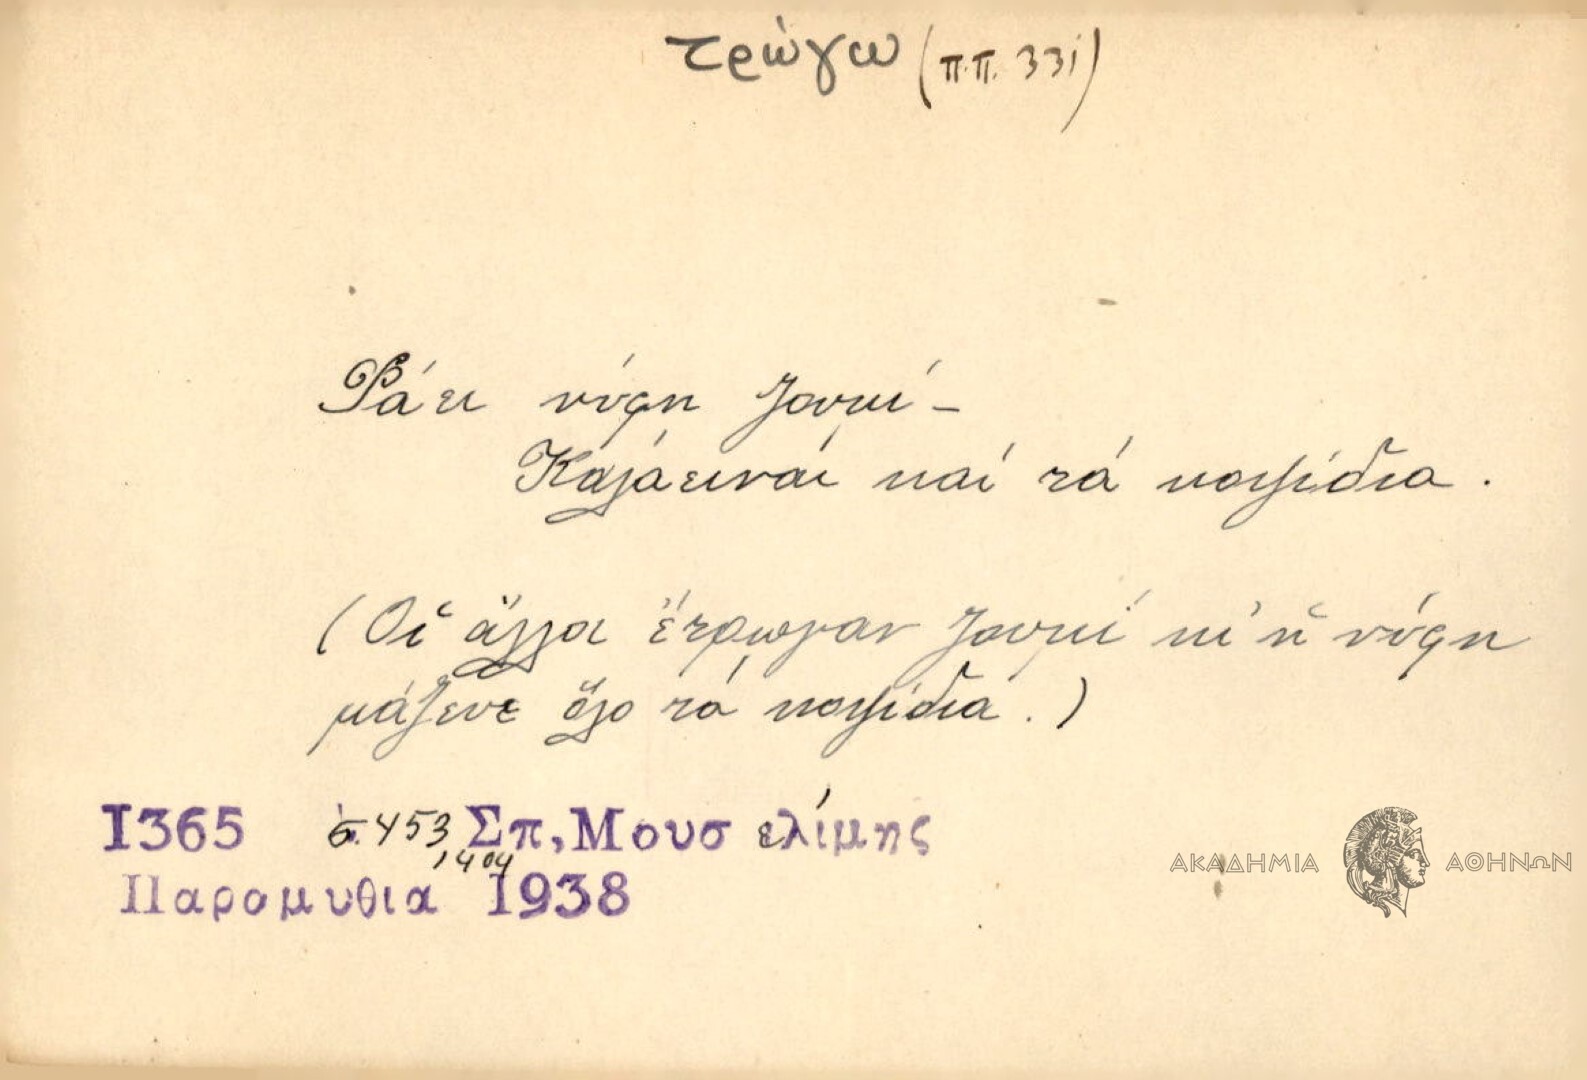 τρώγω (π.π. 331)
Φάει νύφη ζουμί –
Καλάειναι καί τά κοψίδια.
(Οἱ ἄλλοι ἔτρωγαν ζουμί κι' ἡ νύφη
μάζευε ὅλο τά κοψίδια.)
1365 σ. 453 Σπ, Μουσελίμης
, 1404
Παραμυθια 1938
ΑΚΑΔΗΜΙΑ ΑΘΗΝΩΝ